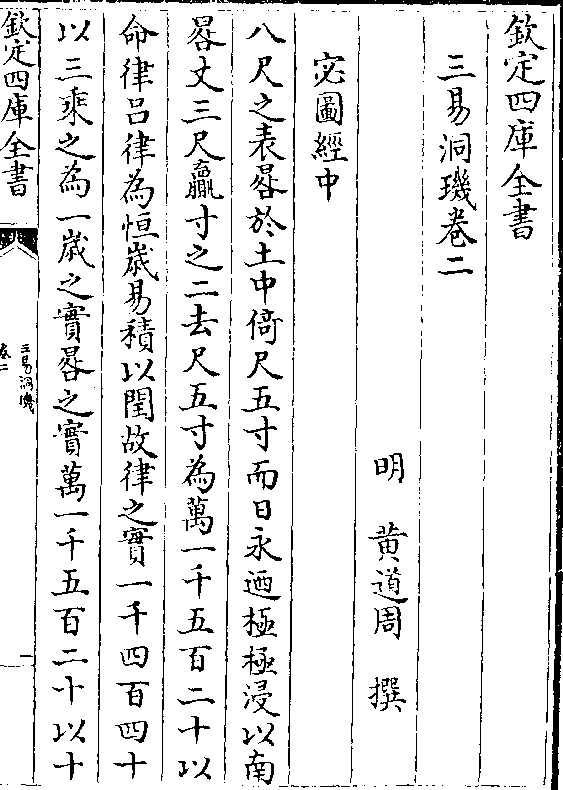 欽定四庫全書
三易洞璣卷二
明 黄道周 撰
宓圖經中
八尺之表晷於土中倚尺五寸而日永迺極極浸以南
晷丈三尺贏寸之二去尺五寸為萬一千五百二十以
命律吕律為恒嵗易積以閏故律之實一千四百四十
以三乘之為一嵗之實晷之實萬一千五百二十以十
欽定四庫全書
三易洞璣
卷二
一